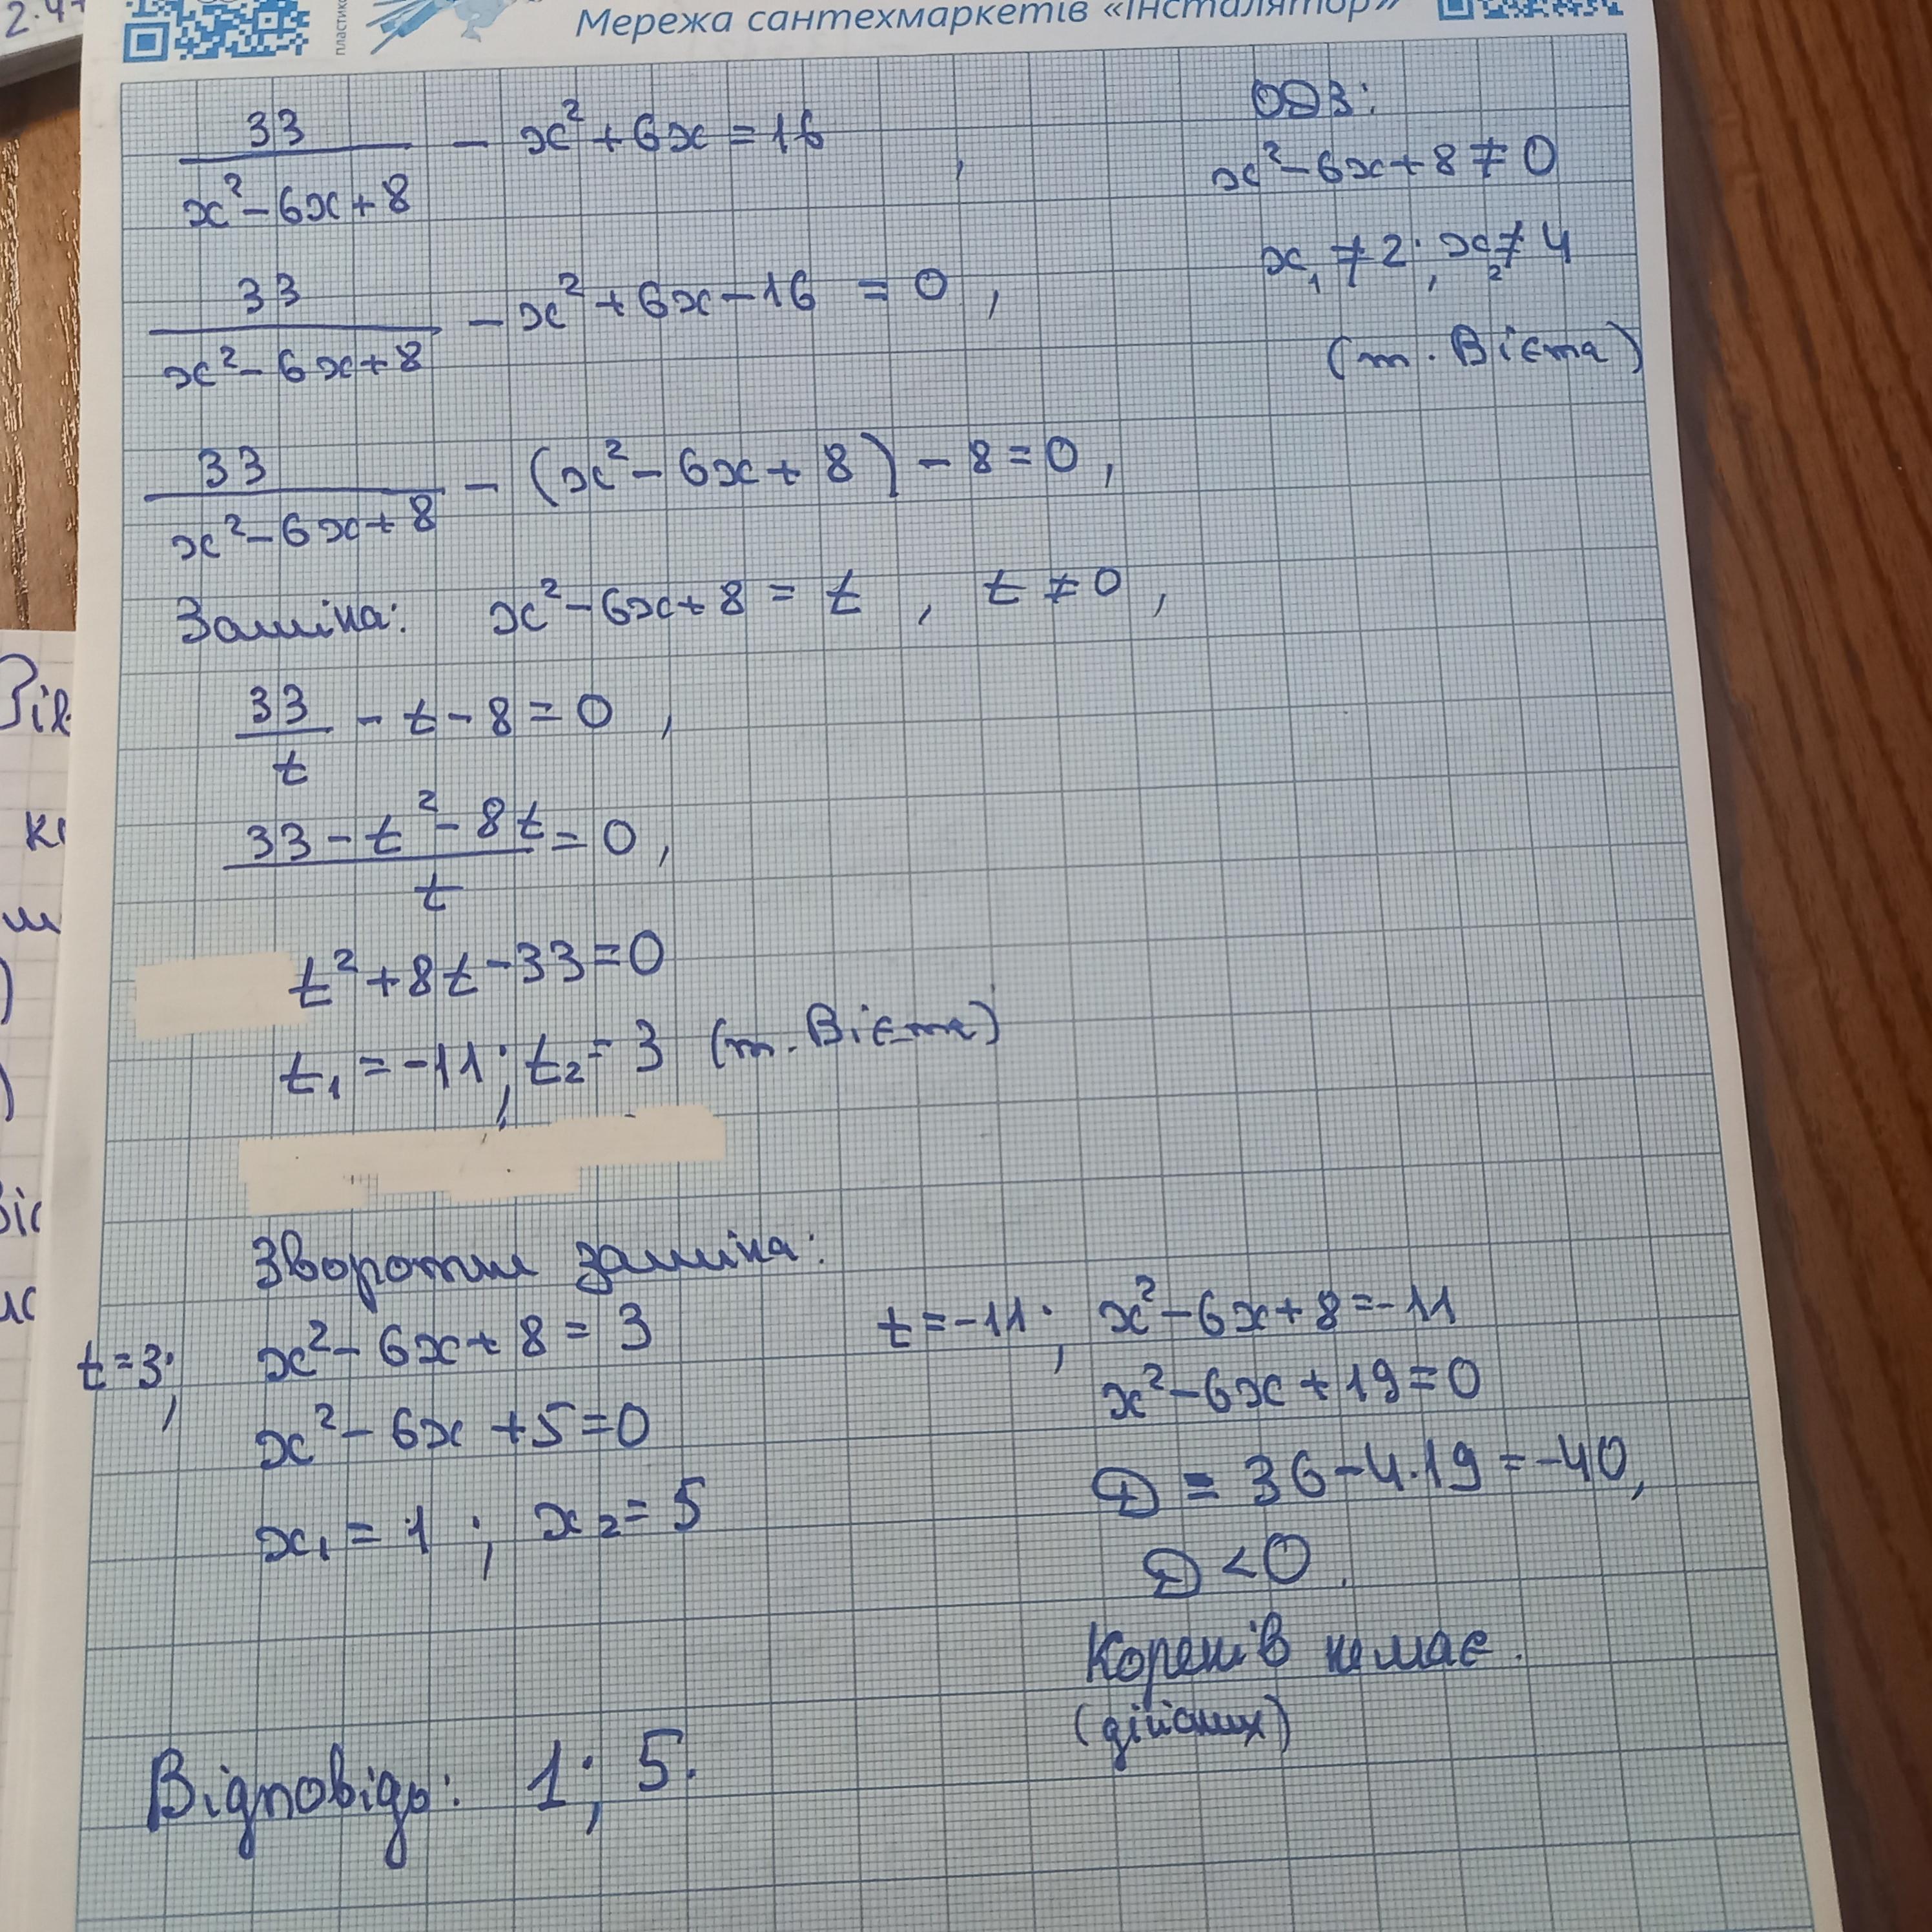 2.4
пластик
Мережа сантехмаркетів «Інсталятор»
33/(x² - 6x + 8) - x² + 6x = 16,
ОДЗ:
x² - 6x + 8 ≠ 0
x₁ ≠ 2; x₂ ≠ 4
(т. Вієта)
33/(x² - 6x + 8) - x² + 6x - 16 = 0,
33/(x² - 6x + 8) - (x² - 6x + 8) - 8 = 0,
Заміна: x² - 6x + 8 = t, t ≠ 0,
33/t - t - 8 = 0,
(33 - t² - 8t)/t = 0,
t² + 8t - 33 = 0
t₁ = -11; t₂ = 3 (т. Вієта)
Зворотня заміна:
t = 3; x² - 6x + 8 = 3
x² - 6x + 5 = 0
x₁ = 1; x₂ = 5
t = -11; x² - 6x + 8 = -11
x² - 6x + 19 = 0
D = 36 - 4·19 = -40,
D < 0.
Коренів немає.
(дійсних)
Відповідь: 1; 5.